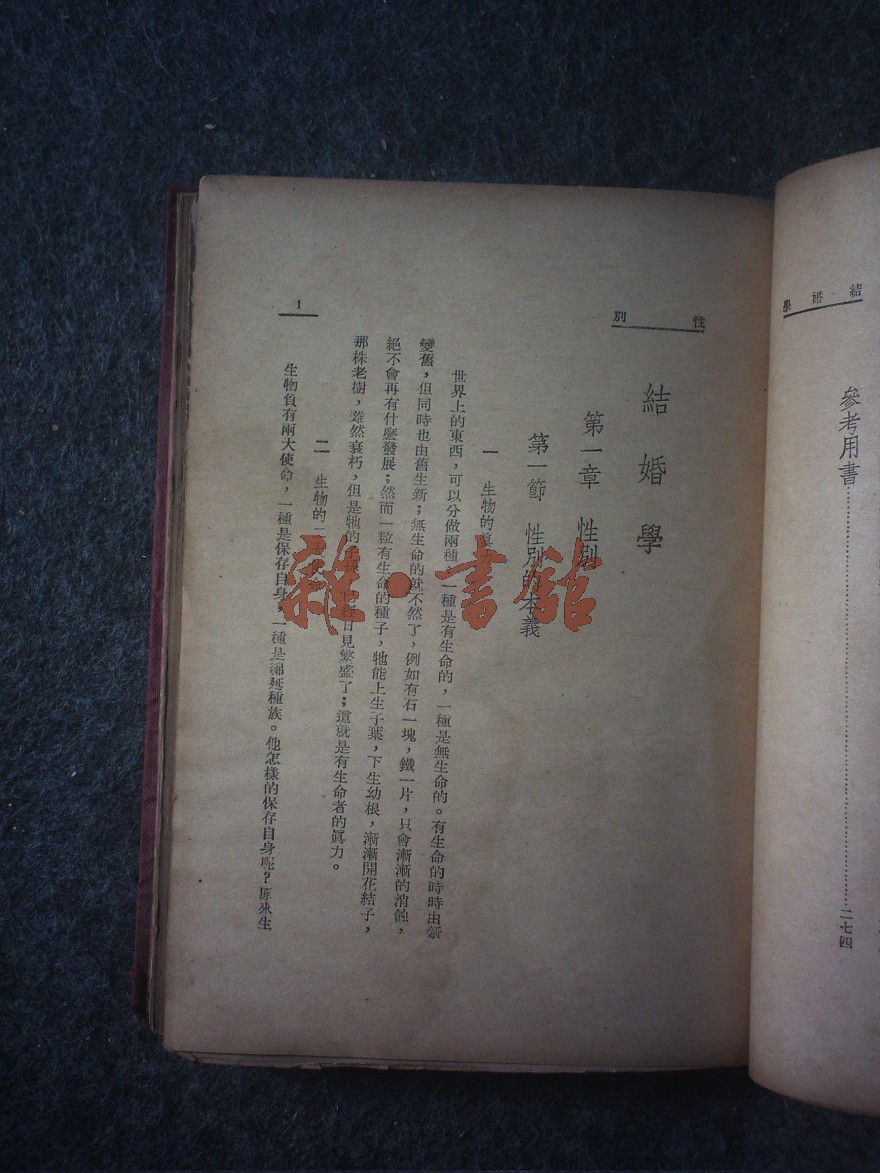 結婚學
參考用書……………………二七四
性別
結婚學
第一章 性別
第一節 性別的本義
一 生物的眞
世界上的東西，可以分做兩種 一種是有生命的，一種是無生命的。有生命的時時由新
變舊，但同時也由舊生新；無生命的就不然了，例如有石一塊，鐵一片，只會漸漸的消蝕，
絕不會再有什麼發展；然而一粒有生命的種子，牠能上生子葉，下生幼根，漸漸開花結子，
那株老樹，雖然衰朽，但是牠的 日見繁盛了；這就是有生命者的眞力。
二 生物的二大
生物負有兩大使命，一種是保存自身 一種是綿延種族。他怎樣的保存自身呢？原來生
1
雜·書館